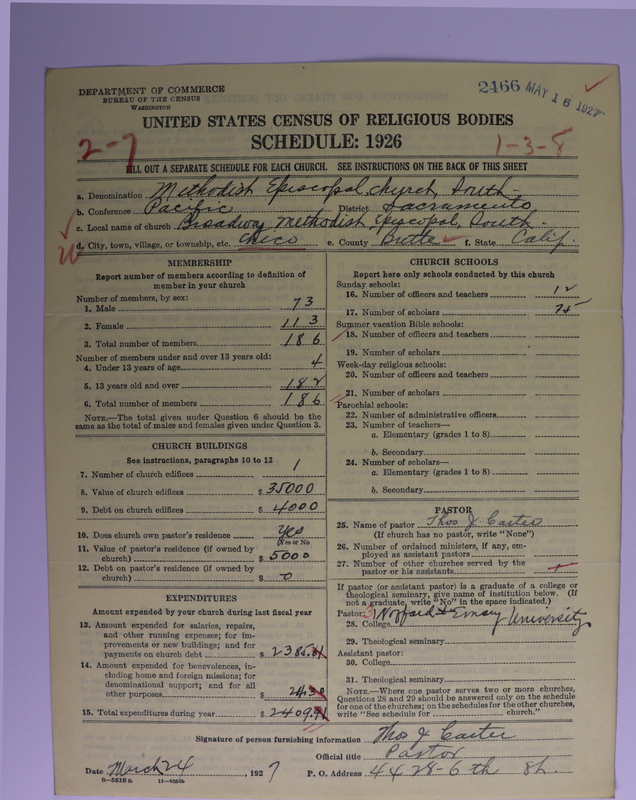 DEPARTMENT OF COMMERCE
BUREAU OF THE CENSUS
WASHINGTON
2466 MAY 16 1927
UNITED STATES CENSUS OF RELIGIOUS BODIES
SCHEDULE: 1926
2-7
1-3-8
FILL OUT A SEPARATE SCHEDULE FOR EACH CHURCH. SEE INSTRUCTIONS ON THE BACK OF THIS SHEET
a. Denomination Methodist Episcopal church, South
b. Conference Pacific District Sacramento
c. Local name of church Broadway Methodist Episcopal, South
d. City, town, village, or township, etc. Chico e. County Butte f. State Calif.
MEMBERSHIP
Report number of members according to definition of member in your church
Number of members, by sex:
1. Male 73
2. Female 113
3. Total number of members 186
Number of members under and over 13 years old:
4. Under 13 years of age 4
5. 13 years old and over 182
6. Total number of members 186
NOTE.—The total given under Question 6 should be the same as the total of males and females given under Question 3.
CHURCH BUILDINGS
See instructions, paragraphs 10 to 12
7. Number of church edifices 1
8. Value of church edifices $ 35000
9. Debt on church edifices $ 4000
10. Does church own pastor's residence Yes
(Yes or No)
11. Value of pastor's residence (if owned by church) $ 5000
12. Debt on pastor's residence (if owned by church) $ 0
EXPENDITURES
Amount expended by your church during last fiscal year
13. Amount expended for salaries, repairs, and other running expenses; for improvements or new buildings; and for payments on church debt $ 2385.
14. Amount expended for benevolences, including home and foreign missions; for denominational support; and for all other purposes $ 24.30
15. Total expenditures during year $ 2409.
CHURCH SCHOOLS
Report here only schools conducted by this church
Sunday schools:
16. Number of officers and teachers 12
17. Number of scholars 75
Summer vacation Bible schools:
18. Number of officers and teachers
19. Number of scholars
Week-day religious schools:
20. Number of officers and teachers
21. Number of scholars
Parochial schools:
22. Number of administrative officers
23. Number of teachers—
a. Elementary (grades 1 to 8)
b. Secondary
24. Number of scholars—
a. Elementary (grades 1 to 8)
b. Secondary
PASTOR
25. Name of pastor Thos J. Carter
(If church has no pastor, write "None")
26. Number of ordained ministers, if any, employed as assistant pastors
27. Number of other churches served by the pastor or his assistants
If pastor (or assistant pastor) is a graduate of a college or theological seminary, give name of institution below. (If not a graduate, write "No" in the space indicated.)
Pastor:
28. College Wofford & Emory University
29. Theological seminary
Assistant pastor:
30. College
31. Theological seminary
NOTE.—Where one pastor serves two or more churches, Questions 28 and 29 should be answered only on the schedule for one of the churches; on the schedules for the other churches, write "See schedule for church."
Signature of person furnishing information Thos J Carter
Official title Pastor
Date March 24, 1927 P. O. Address 4428-6th
8-5518 a